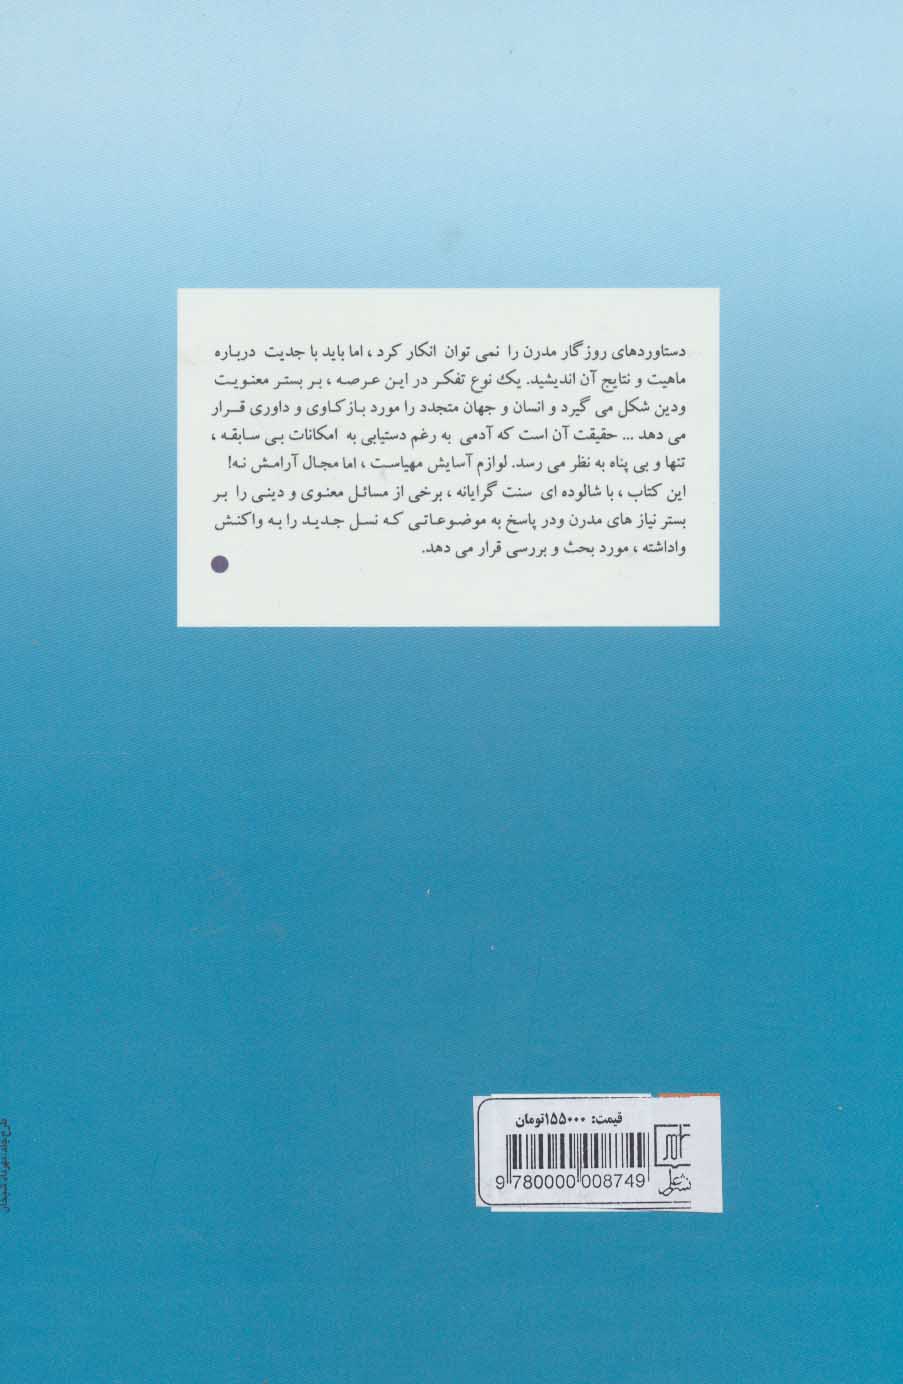 دستاوردهای روزگار مدرن را نمی توان انکار کرد ، اما باید با جدیت درباره
ماهیت و نتایج آن اندیشید. یک نوع تفکر در این عرصه ، بر بستر معنویت
ودین شکل می گیرد و انسان و جهان متجدد را مورد بازکاوی و داوری قرار
می دهد ... حقیقت آن است که آدمی به رغم دستیابی به امکانات بی سابقه ،
تنها و بی پناه به نظر می رسد. لوازم آسایش مهیاست ، اما مجال آرامش نه!
این کتاب ، با شالوده ای سنت گرایانه ، برخی از مسائل معنوی و دینی را بر
بستر نیاز های مدرن ودر پاسخ به موضوعاتی که نسل جدید را به واکنش
واداشته ، مورد بحث و بررسی قرار می دهد.
قیمت: ۱۵۵۰۰۰تومان
9 780000 008749
نشر علم